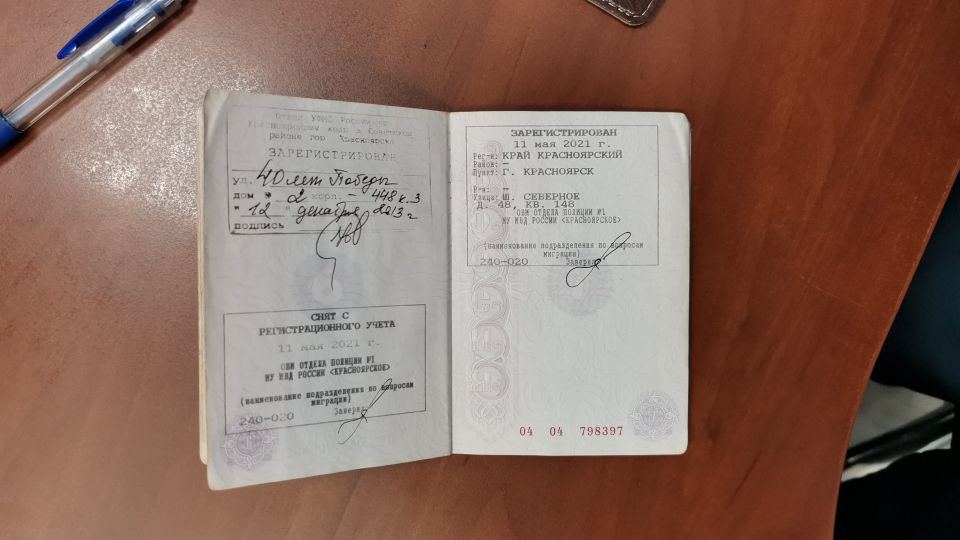 Отдел УФМС России по
Красноярскому краю в Советском
районе гор. Красноярска
ЗАРЕГИСТРИРОВАН
ул. 40 лет Победы
дом № 2 корп. – 448 к. 3
"12" декабря 2013 г
подпись
СНЯТ С
РЕГИСТРАЦИОННОГО УЧЕТА
11 мая 2021 г.
ОВМ ОТДЕЛА ПОЛИЦИИ №1
МУ МВД РОССИИ <КРАСНОЯРСКОЕ>
(наименование подразделения по вопросам
миграции)
240-020 Заверил
ЗАРЕГИСТРИРОВАН
11 мая 2021 г.
Рег-н: КРАЙ КРАСНОЯРСКИЙ
Район: –
Пункт: Г. КРАСНОЯРСК
Р-н: –
Улица: Ш. СЕВЕРНОЕ
Д. 48, КВ. 148
ОВМ ОТДЕЛА ПОЛИЦИИ #1
МУ МВД РОССИИ <КРАСНОЯРСКОЕ>
(наименование подразделения по вопросам
миграции)
240-020 Заверил
04 04 798397